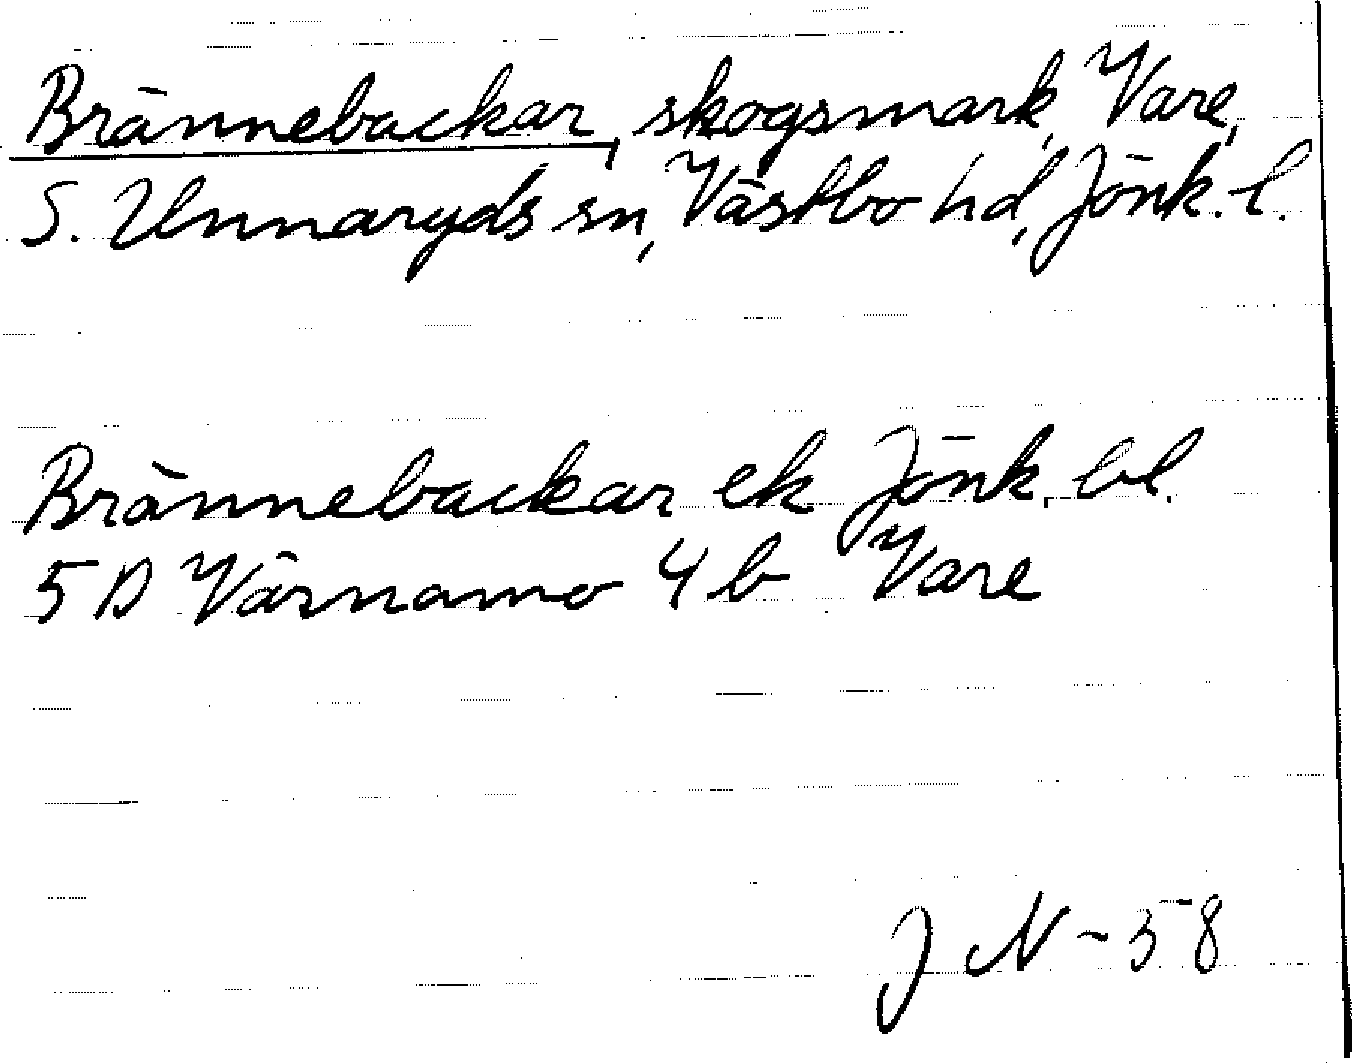 Brännebackar, skogsmark, Vare,
S. Unnaryds sn, Västbo hd, Jönk. l.
Brännebackar ek Jönk. bl.
5D Värnamo 4b Vare
JN-58